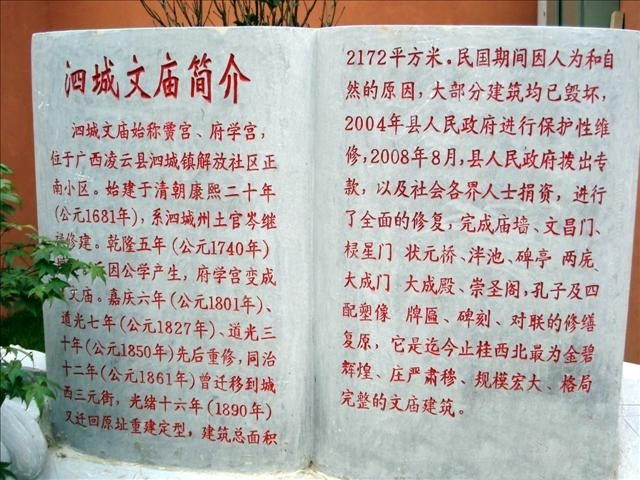 泗城文庙简介
泗城文庙始称黉宫、府学宫,
位于广西凌云县泗城镇解放社区正
南小区。始建于清朝康熙二十年
(公元1681年),系泗城州土官岑继
修建。乾隆五年(公元1740年)
因公学产生,府学宫变成
文庙。嘉庆六年(公元1801年)、
道光七年(公元1827年)、道光三
十年(公元1850年)先后重修,同治
十二年(公元1861年)曾迁移到城
西三元街,光绪十六年(1890年)
又迁回原址重建定型,建筑总面积
2172平方米。民国期间因人为和自
然的原因,大部分建筑均已毁坏,
2004年县人民政府进行保护性维
修,2008年8月,县人民政府拨出专
款,以及社会各界人士捐资,进行
了全面的修复,完成庙墙、文昌门、
棂星门 状元桥、泮池、碑亭 两庑
大成门 大成殿、崇圣阁,孔子及四
配塑像 牌匾、碑刻、对联的修缮
复原,它是迄今止桂西北最为金碧
辉煌、庄严肃穆、规模宏大、格局
完整的文庙建筑。